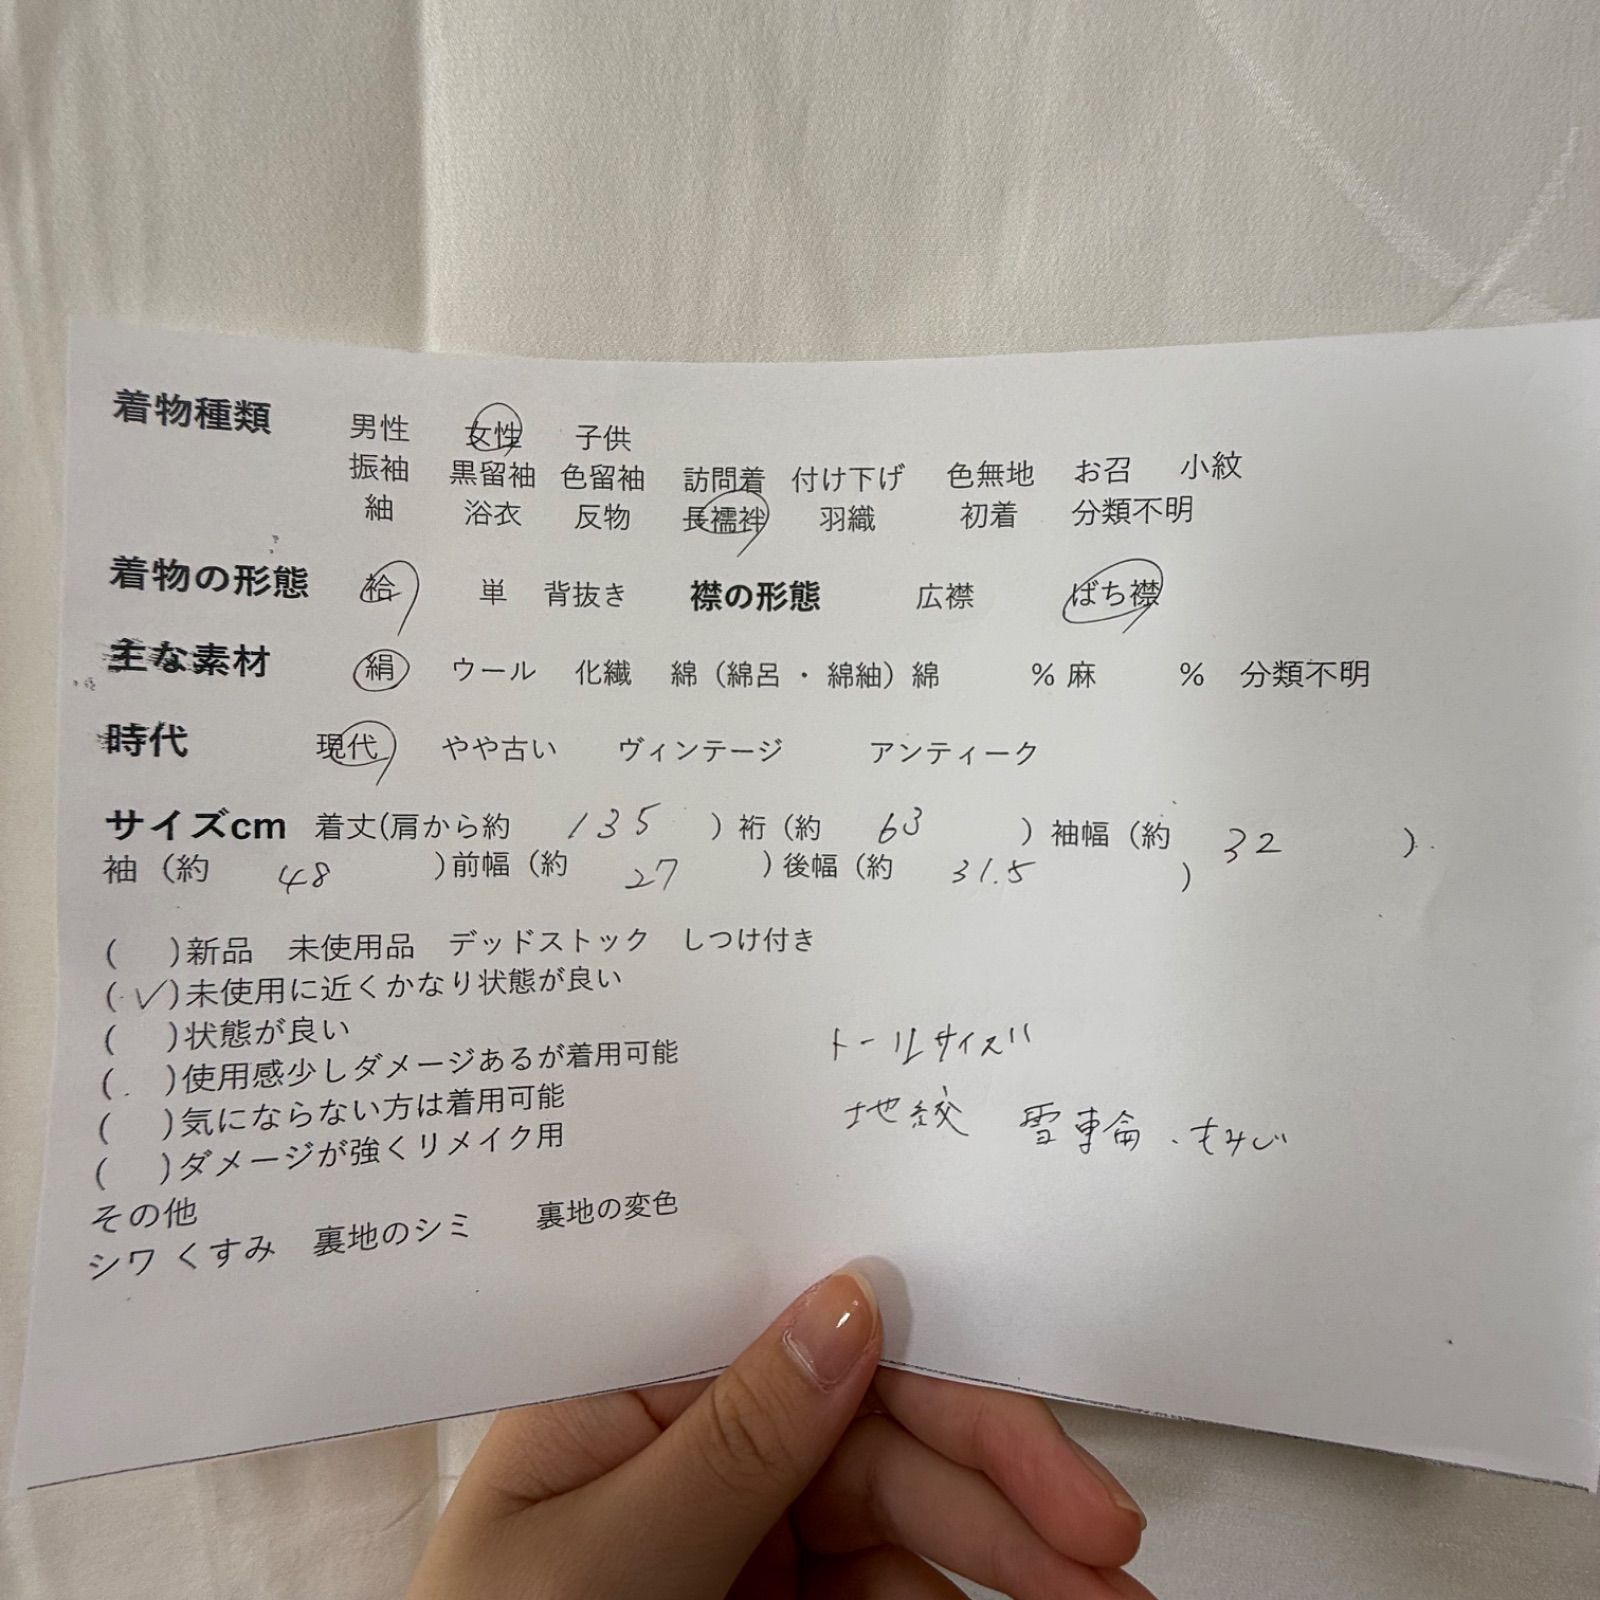 着物種類 男性 女性 子供
振袖 黒留袖 色留袖 訪問着 付け下げ 色無地 お召 小紋
紬 浴衣 反物 長襦袢 羽織 初着 分類不明
着物の形態 袷 単 背抜き 襟の形態 広襟 ばち襟
主な素材 絹 ウール 化繊 綿（綿呂・綿紬）綿 %麻 % 分類不明
時代 現代 やや古い ヴィンテージ アンティーク
サイズcm 着丈(肩から約 135 ) 裄（約 63 ）袖幅（約 32 ）
袖（約 48 )前幅（約 27 )後幅（約 31.5 )
( )新品 未使用品 デッドストック しつけ付き
(✓)未使用に近くかなり状態が良い
( )状態が良い
( )使用感少しダメージあるが着用可能
( )気にならない方は着用可能
( )ダメージが強くリメイク用
トールサイズ
地紋 雪輪、もみじ
その他
シワ くすみ 裏地のシミ 裏地の変色